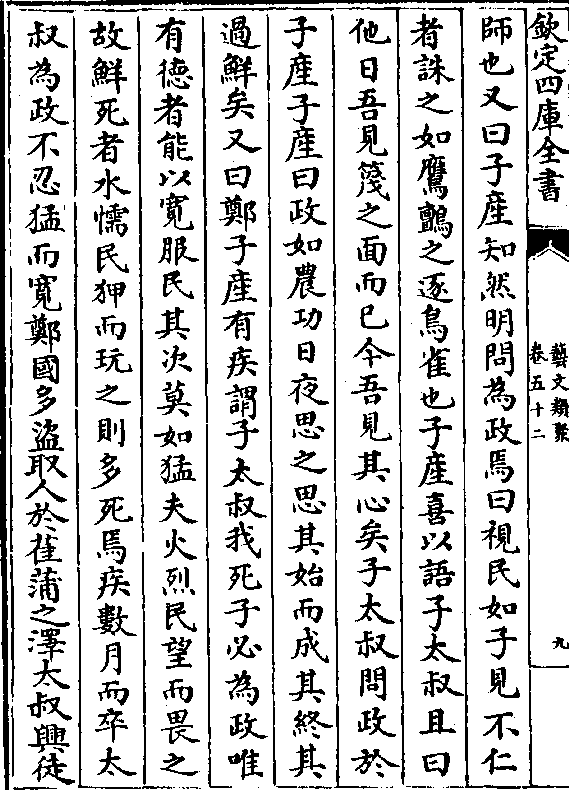 欽定四庫全書
藝文類聚
卷五十二
九
師也又曰子產知然明問為政焉曰視民如子見不仁
者誅之如鷹鸇之逐鳥雀也子產喜以語子太叔且曰
他日吾見篾之面而已今吾見其心矣子太叔問政於
子產子產曰政如農功日夜思之思其始而成其終其
過鮮矣又曰鄭子產有疾謂子太叔我死子必為政唯
有德者能以寛服民其次莫如猛夫火烈民望而畏之
故鮮死者水懦民狎而玩之則多死焉疾數月而卒太
叔為政不忍猛而寛鄭國多盜取人於萑蒲之澤太叔興徒